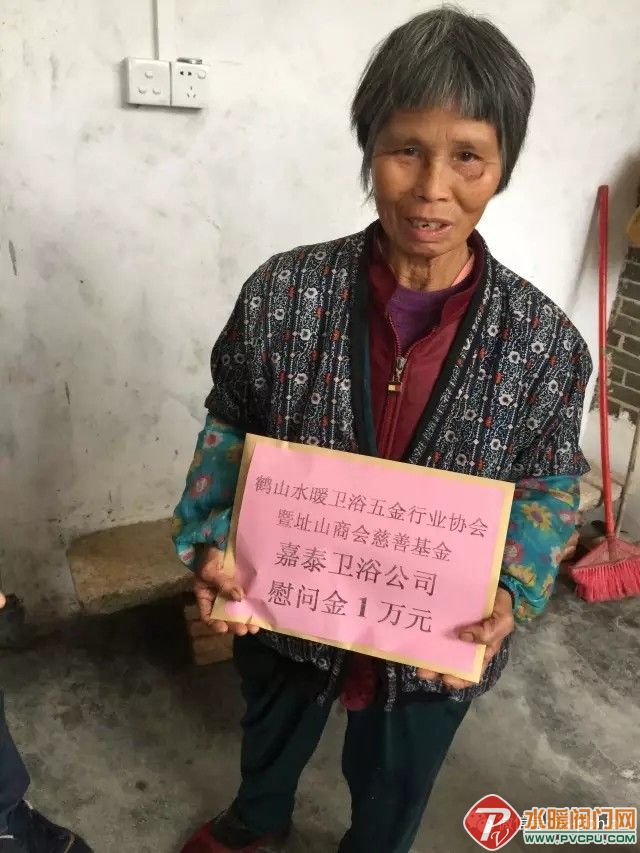 鹤山水暖卫浴五金行业协会
暨址山商会慈善基金
嘉泰卫浴公司
慰问金1万元
水暖阀门网
WWW.PVCPU.COM